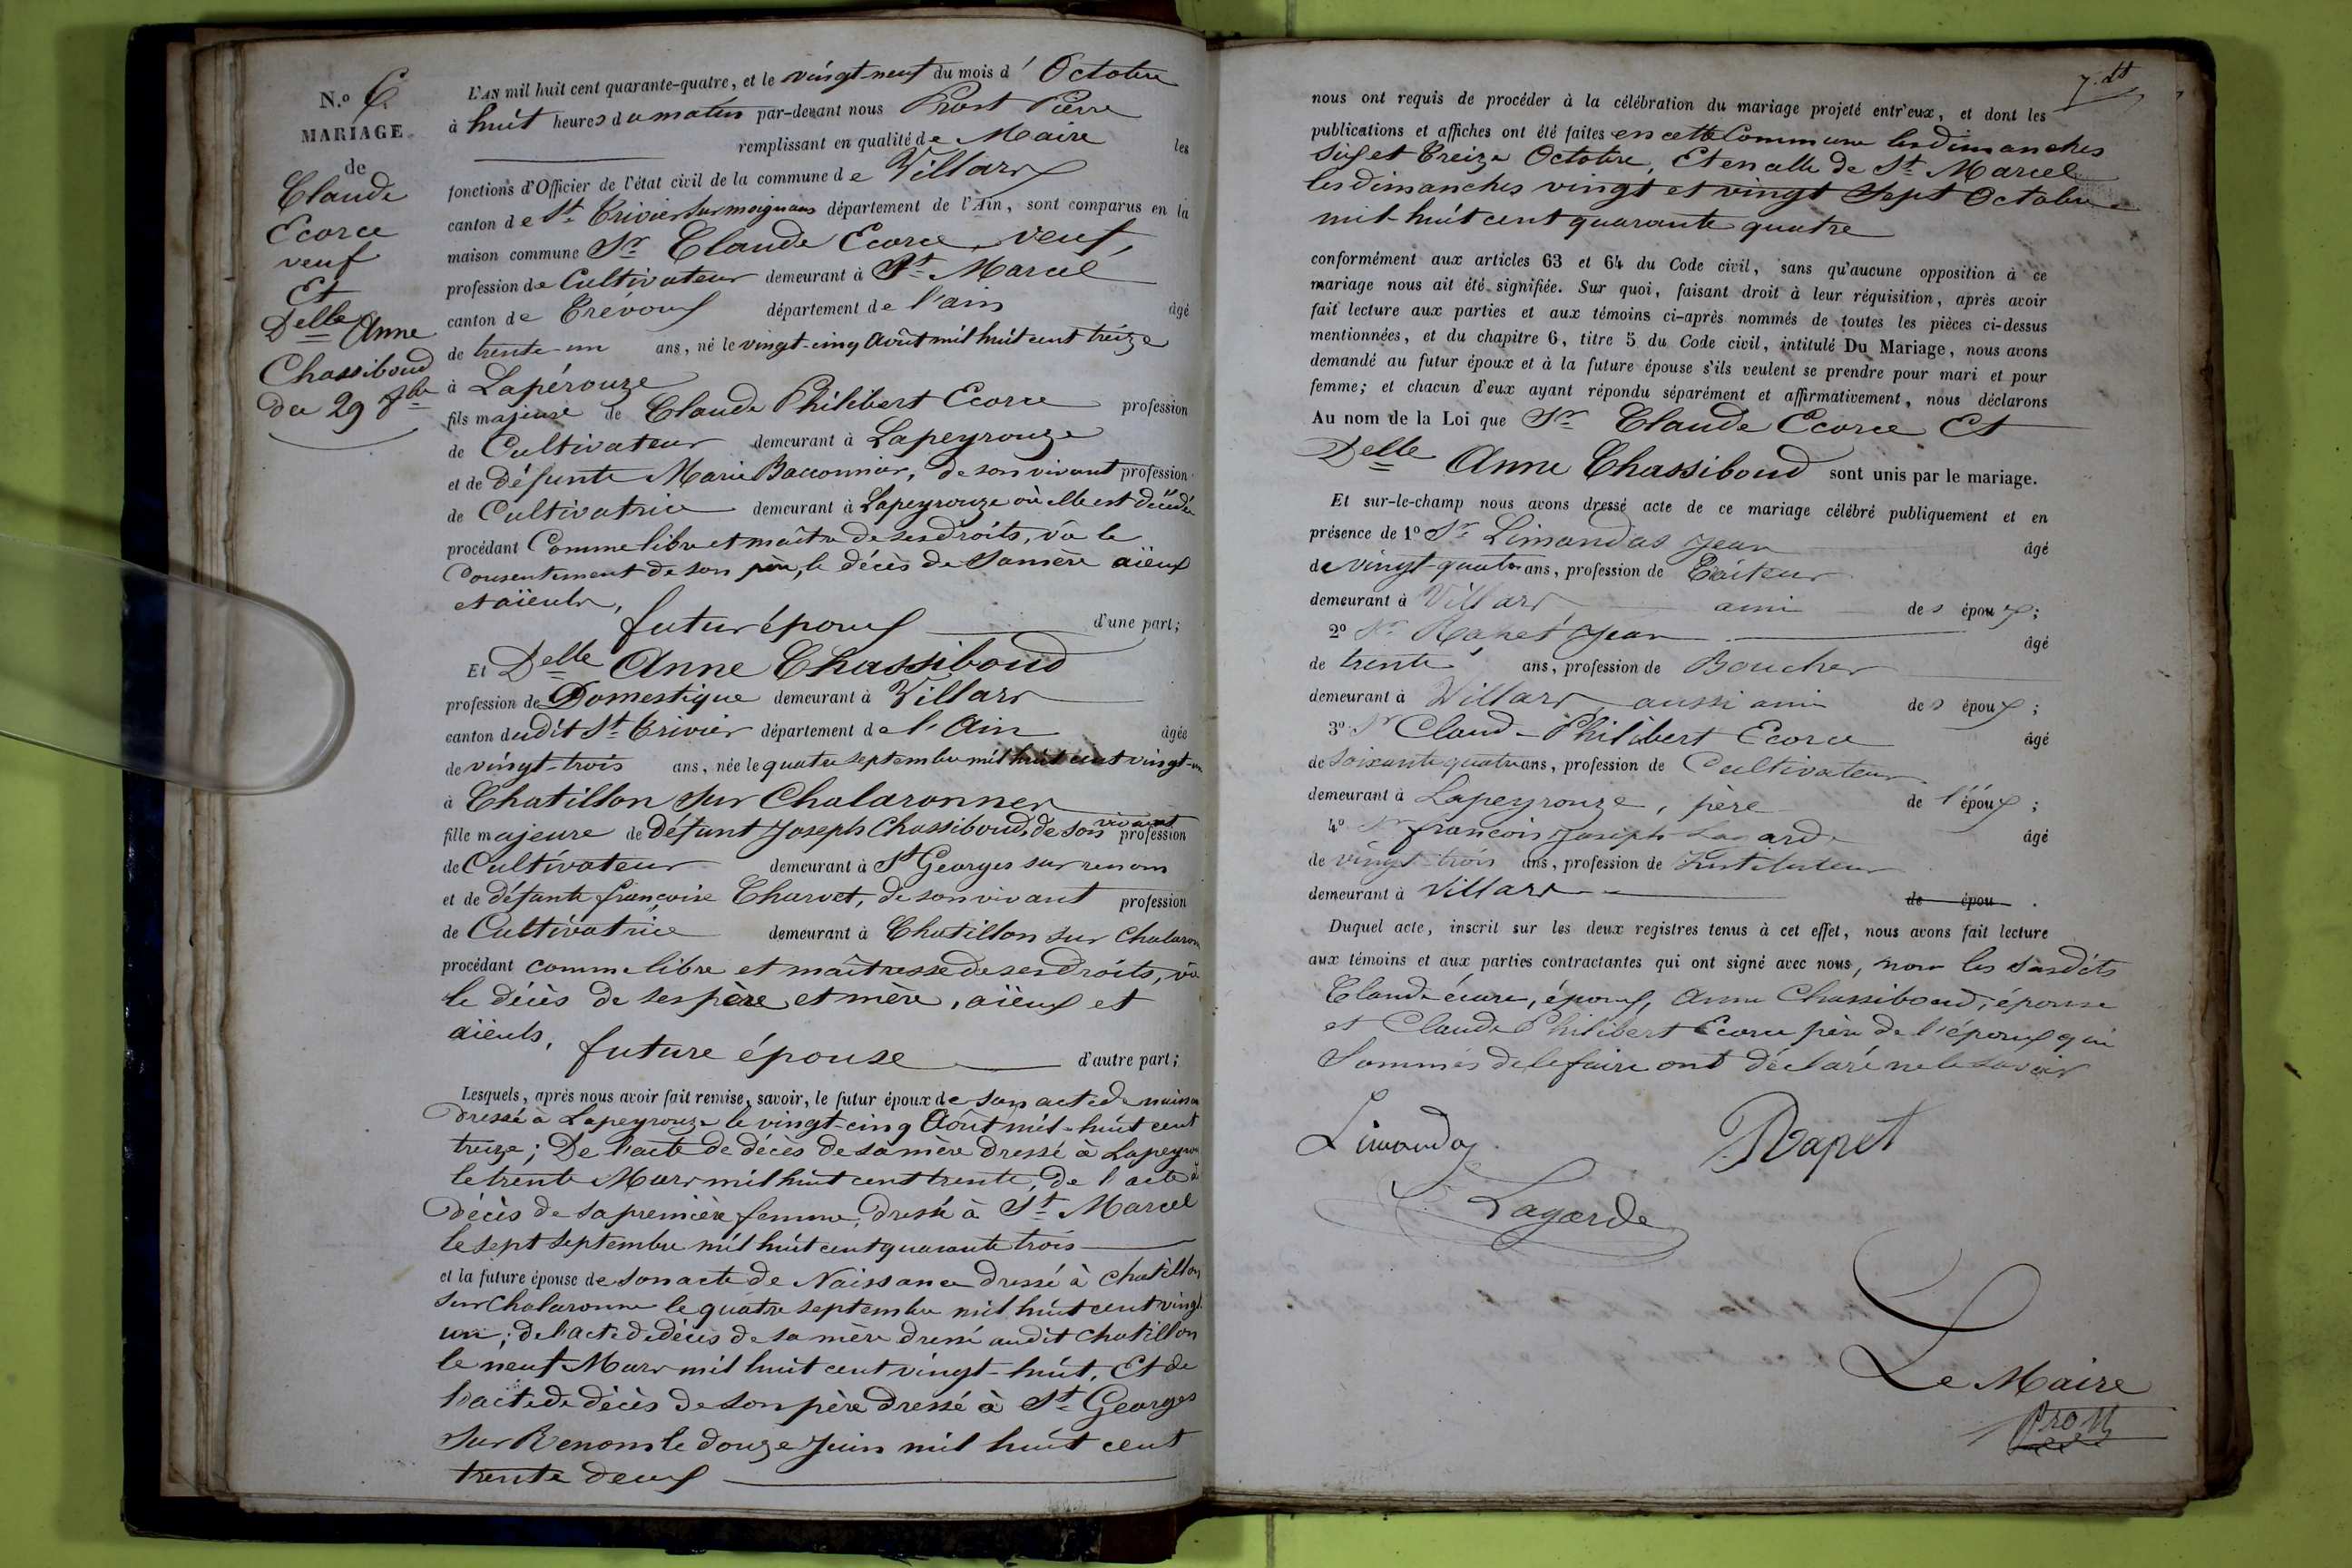 N.o 6.
MARIAGE
de
Claude
Ecorce
veuf
Et
Delle Anne
Chassiboud
du 29 8bre
L'AN mil huit cent quarante-quatre, et le vingt-neuf du mois d' Octobre
à huit heures du matin par-devant nous Prost Pierre
remplissant en qualité de Maire les
fonctions d'Officier de l'état civil de la commune de Villars
canton de St Trivier sur moignans département de l'Ain, sont comparus en la
maison commune Sr Claude Ecorce, veuf,
profession de Cultivateur demeurant à St Marcel
canton de Trévoux département de l'ain âgé
de trente-un ans, né le vingt-cinq Août mil huit cent treize
à Lapérouze
fils majeur de Claude Philibert Ecorce profession
de Cultivateur demeurant à Lapeyrouze
et de défunte Marie Bacconnier, de son vivant profession
de Cultivatrice demeurant à Lapeyrouze où elle est décédée
procédant Comme libre et maître de ses droits, vu le
Consentement de son père, le décès de sa mère aïeux
et aïeuls,
futur époux d'une part;
Et Delle Anne Chassiboud
profession de Domestique demeurant à Villars
canton dudit St Trivier département de l'Ain âgée
de vingt-trois ans, née le quatre septembre mil huit cent vingt-un
à Chatillon sur Chalaronne
fille majeure de Défunt Joseph Chassiboud, de son vivant profession
de Cultivateur demeurant à St Georges sur renom
et de défunte françoise Charvet, de son vivant profession
de Cultivatrice demeurant à Chatillon sur Chalaron
procédant comme libre et maîtresse de ses droits, vu
le décès de ses père et mère, aïeux et
aïeuls,
future épouse d'autre part;
Lesquels, après nous avoir fait remise, savoir, le futur époux de son acte de naissan
dressé à Lapeyrouze le vingt-cinq Août mil-huit cent
treize; De l'acte de décès de sa mère dressé à Lapeyrou
le trente Mars mil huit cent trente, de l'acte de
Décès de sa première femme, dressé à St Marcel
le sept septembre mil huit cent quarante trois
et la future épouse de son acte de Naissance dressé à Chatillon
sur Chalaronne le quatre septembre mil huit cent vingt
un; de l'acte de décès de sa mère dressé audit Chatillon
le neuf Mars mil huit cent vingt-huit, Et de
l'acte de décès de son père dressé à St Georges
sur Renom le douze Juin mil huit cent
trente deux
7. dt
nous ont requis de procéder à la célébration du mariage projeté entr'eux, et dont les
publications et affiches ont été faites en cette Commune les dimanches
six et treize Octobre, Et en celle de St Marcel
les dimanches vingt et vingt Sept Octobre
mil-huit cent quarante quatre
conformément aux articles 63 et 64 du Code civil, sans qu'aucune opposition à ce
mariage nous ait été signifiée. Sur quoi, faisant droit à leur réquisition, après avoir
fait lecture aux parties et aux témoins ci-après nommés de toutes les pièces ci-dessus
mentionnées, et du chapitre 6, titre 5 du Code civil, intitulé Du Mariage, nous avons
demandé au futur époux et à la future épouse s'ils veulent se prendre pour mari et pour
femme; et chacun d'eux ayant répondu séparément et affirmativement, nous déclarons
Au nom de la Loi que Sr Claude Ecorce Et
Delle Anne Chassiboud sont unis par le mariage.
Et sur-le-champ nous avons dressé acte de ce mariage célébré publiquement et en
présence de 1o Sr Limandas Jean âgé
de vingt-quatre ans, profession de
demeurant à Villars ami des époux;
2o Sr Rapet Jean âgé
de trente ans, profession de Boucher
demeurant à Villars, aussi ami des époux;
3o Sr Claude-Philibert Ecorce âgé
de soixante quatre ans, profession de Cultivateur
demeurant à Lapeyrouze, père de l'époux;
4o Sr françois Joseph Lagarde âgé
de vingt-trois ans, profession de Instituteur
demeurant à Villars de épou .
Duquel acte, inscrit sur les deux registres tenus à cet effet, nous avons fait lecture
aux témoins et aux parties contractantes qui ont signé avec nous, non les susdits
Claude écorce, époux, Anne Chassiboud, épouse
et Claude Philibert Ecorce père de l'époux qui
Sommés de le faire ont déclaré ne le savoir
Limandas
Rapet
Lagarde
Le Maire
Prost